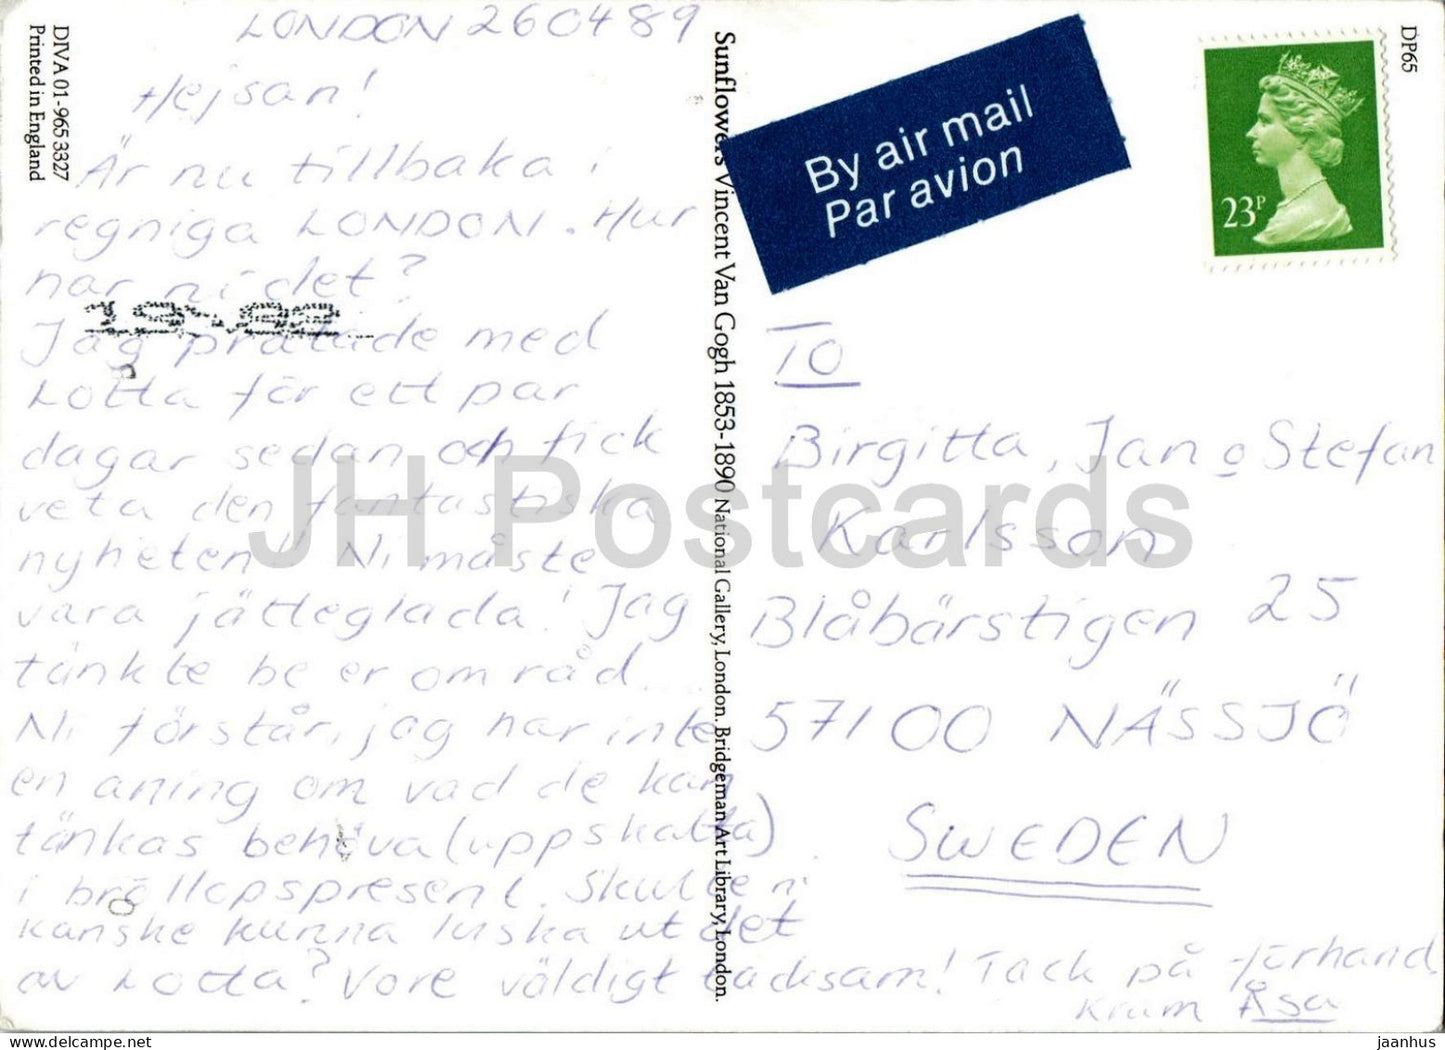 LONDON 260489
Hejsan!
Är nu tillbaka i
regniga LONDON. Hur
har ni det?
Jag pratade med
Lotta för ett par
dagar sedan och fick
veta den fantastiska
nyheten!! Ni måste
vara jätteglada! Jag
tänkte be er om råd...
Ni förstår, jag har inte
en aning om vad de kan
tänkas behöva (uppskatta)
i bröllopspresent. Skulle ni
kanske kunna luska ut det
av Lotta? Vore väldigt tacksam! Tack på förhand
Kram Åsa
DIVA 01-965 3327
Printed in England
Sunflowers Vincent Van Gogh 1853-1890 National Gallery, London. Bridgeman Art Library, London.
By air mail
Par avion
23P
DP65
TO
Birgitta, Jan o Stefan
Karlsson
Blåbärstigen 25
57100 NÄSSJÖ
SWEDEN
JH Postcards
jaanhus